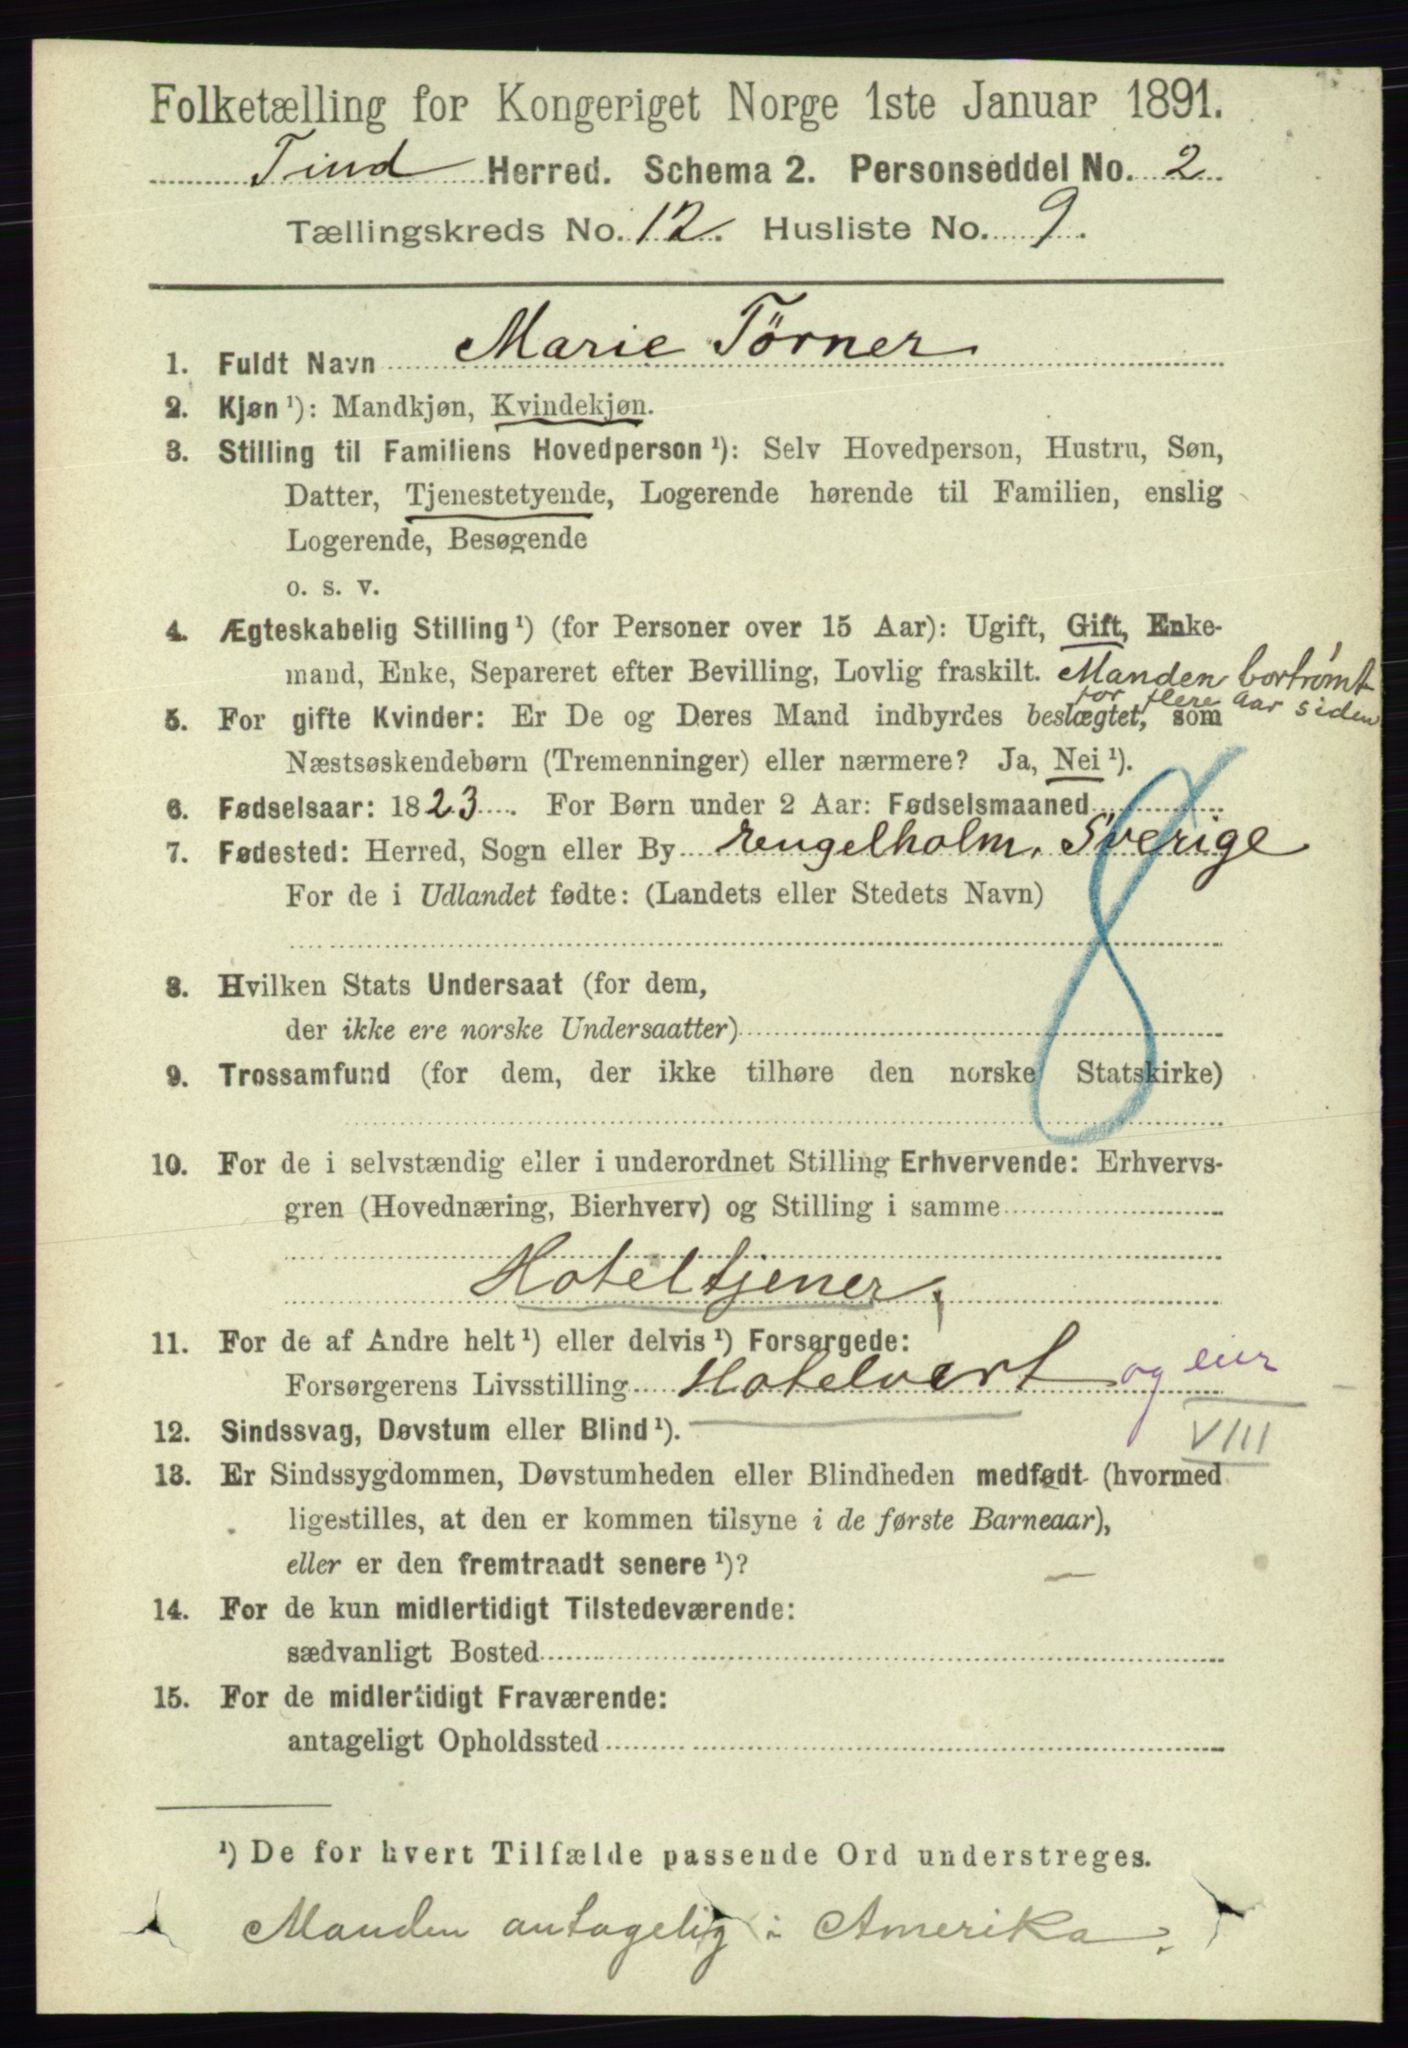 Folketælling for Kongeriget Norge 1ste Januar 1891.
Tind Herred. Schema 2. Personseddel No. 2
Tællingskreds No. 12. Husliste No. 9.
1. Fuldt Navn Marie Törner
2. Kjøn ¹): Mandkjøn, Kvindekjøn.
3. Stilling til Familiens Hovedperson ¹): Selv Hovedperson, Hustru, Søn,
Datter, Tjenestetyende, Logerende hørende til Familien, enslig
Logerende, Besøgende
o. s. v.
4. Ægteskabelig Stilling ¹) (for Personer over 15 Aar): Ugift, Gift, Enke-
mand, Enke, Separeret efter Bevilling, Lovlig fraskilt. Manden bortrømt
for flere Aar siden
5. For gifte Kvinder: Er De og Deres Mand indbyrdes beslægtet, som
Næstsøskendebørn (Tremenninger) eller nærmere? Ja, Nei ¹).
6. Fødselsaar: 1823. For Børn under 2 Aar: Fødselsmaaned
7. Fødested: Herred, Sogn eller By Engelholm. Sverige
For de i Udlandet fødte: (Landets eller Stedets Navn)
8
8. Hvilken Stats Undersaat (for dem,
der ikke ere norske Undersaatter)
9. Trossamfund (for dem, der ikke tilhøre den norske Statskirke)
10. For de i selvstændig eller i underordnet Stilling Erhvervende: Erhvervs-
gren (Hovednæring, Bierhverv) og Stilling i samme
Hoteltjener,
11. For de af Andre helt ¹) eller delvis ¹) Forsørgede:
Forsørgerens Livsstilling Hotelvert og eier
VIII
12. Sindssvag, Døvstum eller Blind ¹).
13. Er Sindssygdommen, Døvstumheden eller Blindheden medfødt (hvormed
ligestilles, at den er kommen tilsyne i de første Barneaar),
eller er den fremtraadt senere ¹)?
14. For de kun midlertidigt Tilstedeværende:
sædvanligt Bosted
15. For de midlertidigt Fraværende:
antageligt Opholdssted
¹) De for hvert Tilfælde passende Ord understreges.
Manden antagelig i Amerika.